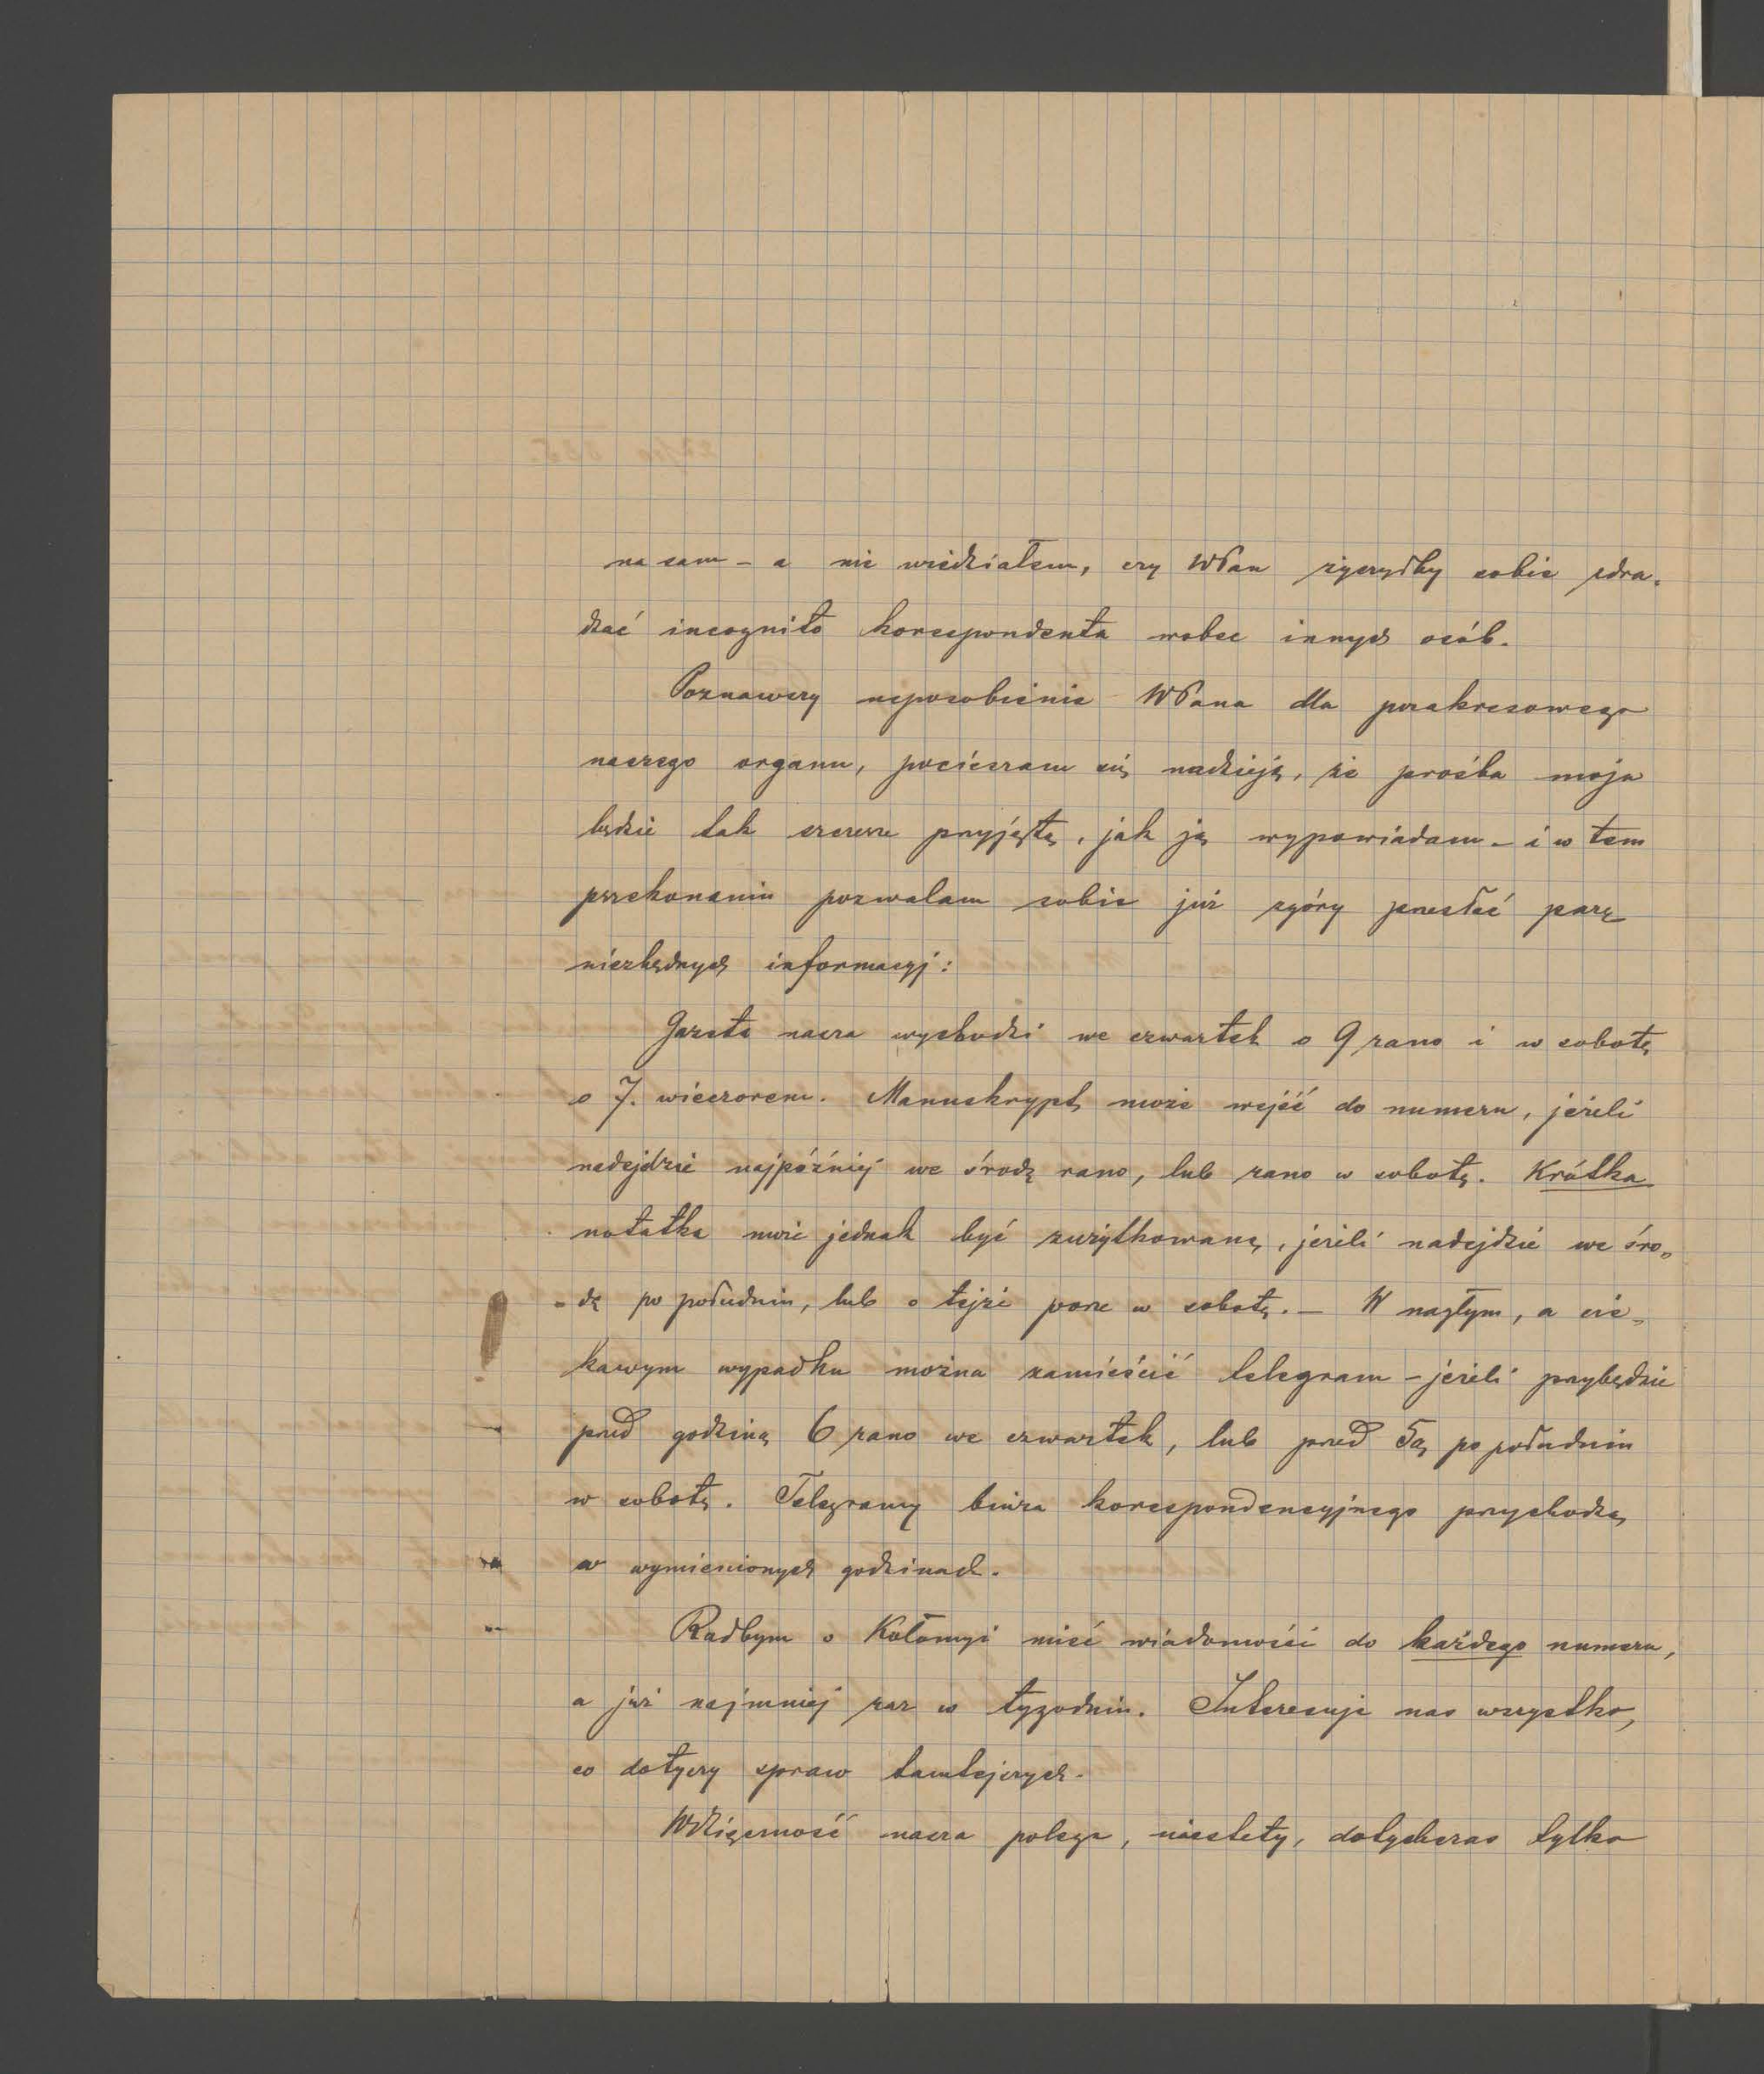 na sam – a nie wiedziałem, czy WPan życzyłby sobie zdra-
dzać incognito korespondenta wobec innych osób.
Poznawszy usposobienie WPana dla pozakresowego
naszego organu, pocieszam się nadzieją, że prośba moja
będzie tak szczerze przyjętą, jak ją wypowiadam – i w tem
przekonaniu pozwalam sobie już zgóry przesłać parę
niezbędnych informacyj:
Gazeta nasza wychodzi we czwartek o 9 rano i w sobotę
o 7. wieczorem. Manuskrypt może wejść do numeru, jeżeli
nadejdzie najpóźniej we środę rano, lub rano w sobotę. Krótka
notatka może jednak być zużytkowaną, jeżeli nadejdzie we śro-
dę po południu, lub o tejże porze w sobotę. – W nagłym, a cie-
kawym wypadku można zamieścić telegram – jeżeli przybędzie
przed godziną 6 rano we czwartek, lub przed 5ą po południu
w sobotę. Telegramy biura korespondencyjnego przychodzą
w wymienionych godzinach.
Radbym o Kołomyi mieć wiadomości do każdego numeru,
a już najmniej raz w tygodniu. Interesuje nas wszystko,
co dotyczy spraw tamtejszych.
Wdzięczność nasza polega, niestety, dotychczas tylko